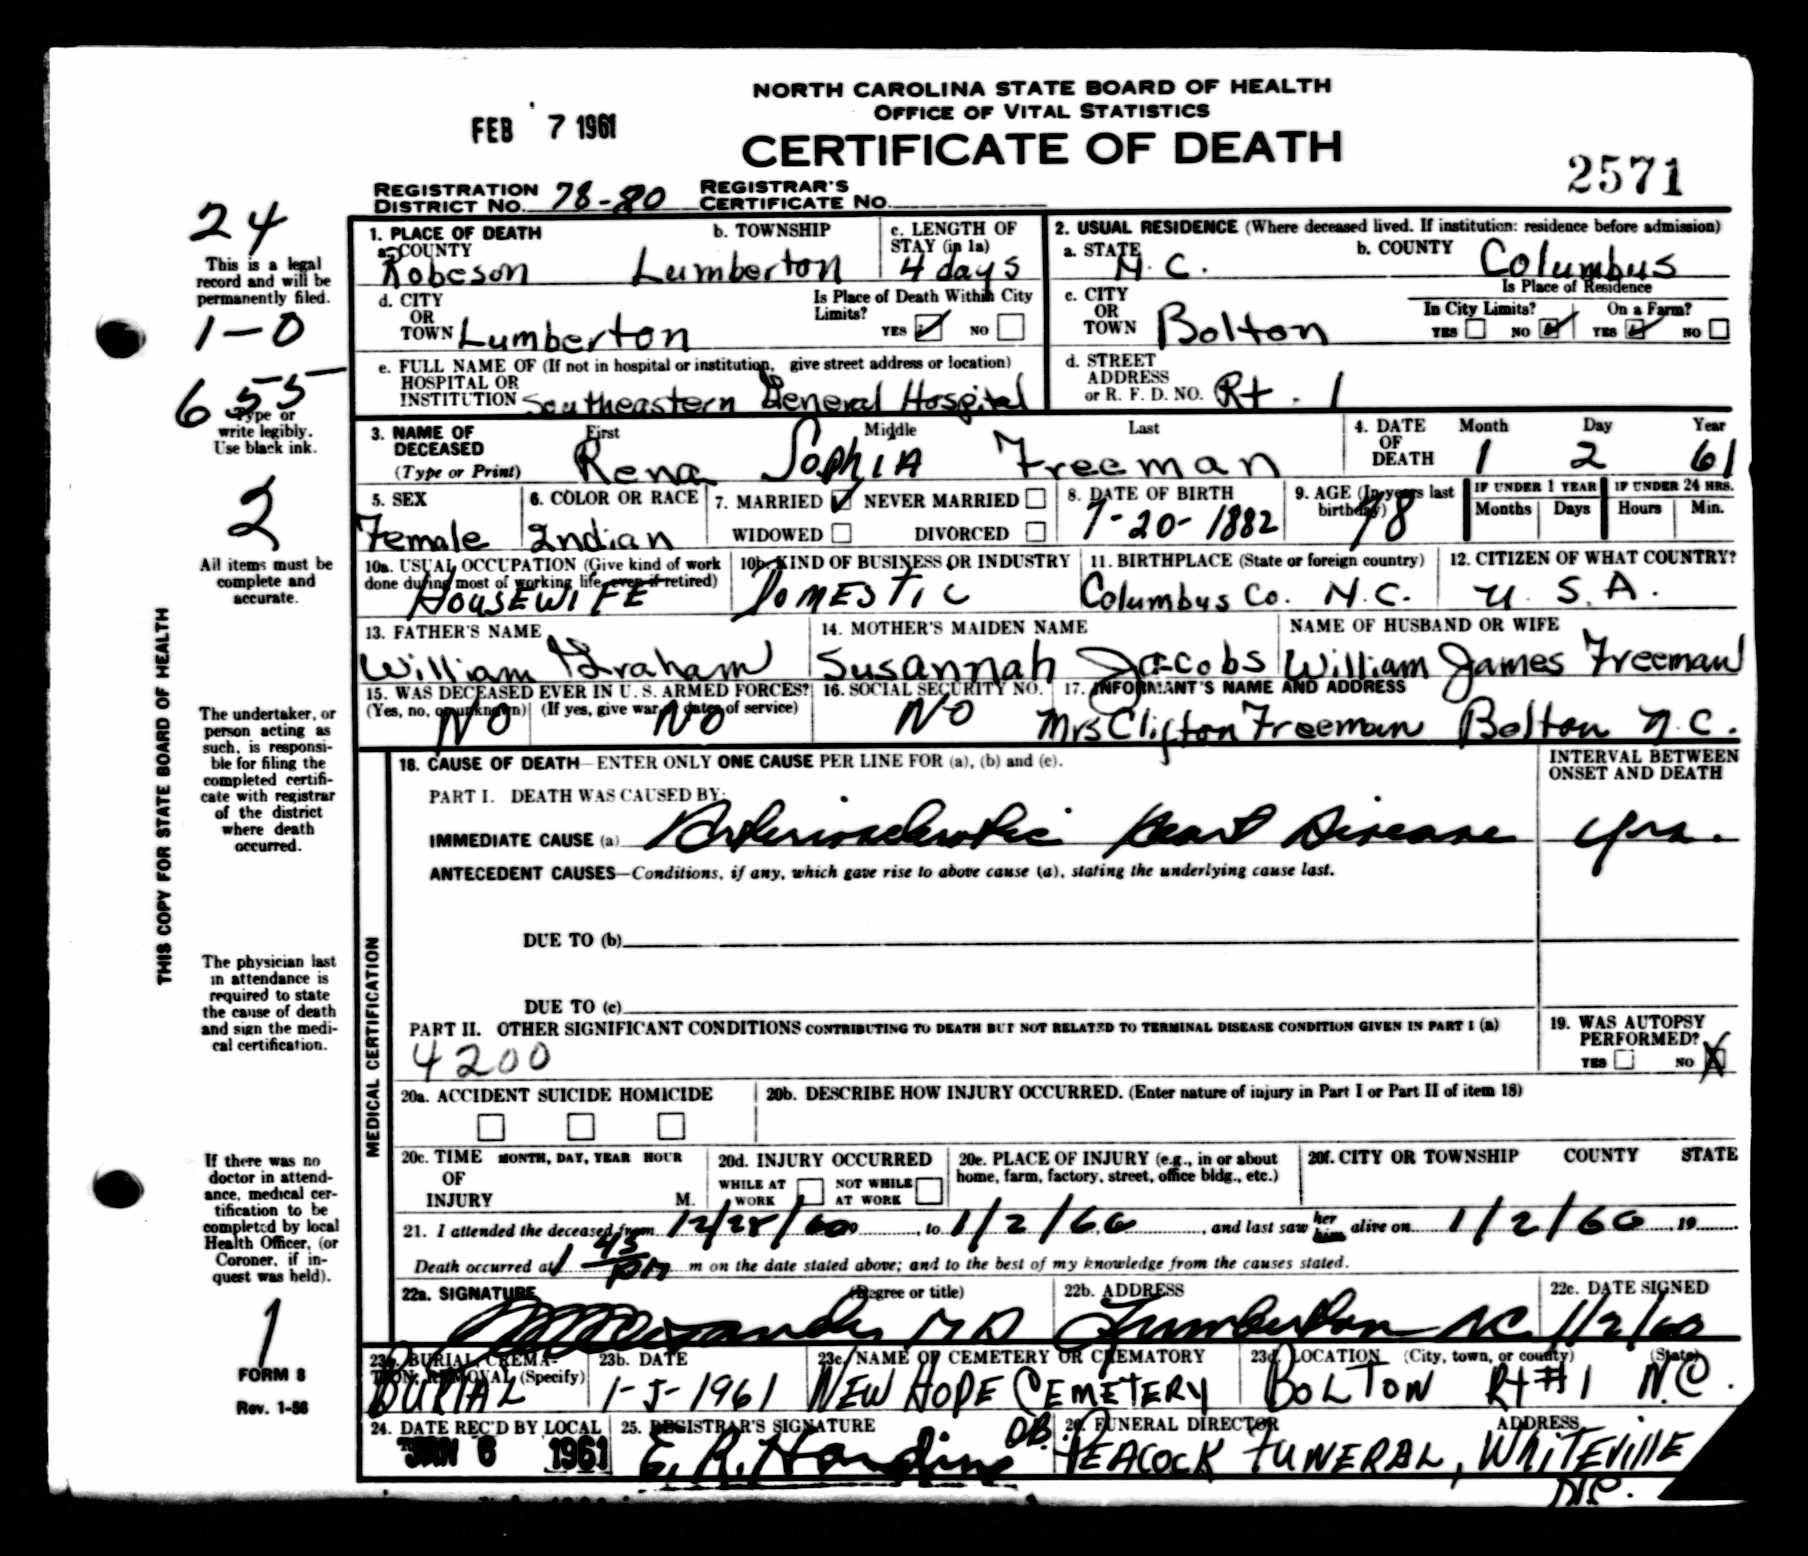 NORTH CAROLINA STATE BOARD OF HEALTH
OFFICE OF VITAL STATISTICS
CERTIFICATE OF DEATH
FEB 7 1961
2571
REGISTRATION DISTRICT NO. 78-80 REGISTRAR'S CERTIFICATE NO.
24
This is a legal record and will be permanently filed.
1-0
655
Type or write legibly. Use black ink.
2
All items must be complete and accurate.
THIS COPY FOR STATE BOARD OF HEALTH
The undertaker, or person acting as such, is responsible for filing the completed certificate with registrar of the district where death occurred.
The physician last in attendance is required to state the cause of death and sign the medical certification.
If there was no doctor in attendance, medical certification to be completed by local Health Officer, (or Coroner, if inquest was held).
1
FORM 8
Rev. 1-56
1. PLACE OF DEATH
a. COUNTY Robeson
b. TOWNSHIP Lumberton
c. LENGTH OF STAY (in 1a) 4 days
2. USUAL RESIDENCE (Where deceased lived. If institution: residence before admission)
a. STATE N.C.
b. COUNTY Columbus
d. CITY OR TOWN Lumberton
Is Place of Death Within City Limits? YES NO
c. CITY OR TOWN Bolton
Is Place of Residence
In City Limits? YES NO
On a Farm? YES NO
e. FULL NAME OF HOSPITAL OR INSTITUTION (If not in hospital or institution, give street address or location) Southeastern General Hospital
d. STREET ADDRESS or R. F. D. NO. Rt. 1
3. NAME OF DECEASED (Type or Print)
First Middle Last
Rena Sophia Freeman
4. DATE OF DEATH Month Day Year
1 2 61
5. SEX Female
6. COLOR OR RACE Indian
7. MARRIED NEVER MARRIED
WIDOWED DIVORCED
8. DATE OF BIRTH 7-20-1882
9. AGE (In years last birthday) 78
IF UNDER 1 YEAR Months Days
IF UNDER 24 HRS. Hours Min.
10a. USUAL OCCUPATION (Give kind of work done during most of working life, even if retired) HOUSEWIFE
10b. KIND OF BUSINESS OR INDUSTRY DOMESTIC
11. BIRTHPLACE (State or foreign country) Columbus Co. N.C.
12. CITIZEN OF WHAT COUNTRY? U.S.A.
13. FATHER'S NAME William Graham
14. MOTHER'S MAIDEN NAME Susannah Jacobs
NAME OF HUSBAND OR WIFE William James Freeman
15. WAS DECEASED EVER IN U. S. ARMED FORCES? (Yes, no, or unknown) NO (If yes, give war or dates of service) NO
16. SOCIAL SECURITY NO. NO
17. INFORMANT'S NAME AND ADDRESS Mrs Clifton Freeman Bolton N.C.
MEDICAL CERTIFICATION
18. CAUSE OF DEATH—ENTER ONLY ONE CAUSE PER LINE FOR (a), (b) and (c).
INTERVAL BETWEEN ONSET AND DEATH
PART I. DEATH WAS CAUSED BY:
IMMEDIATE CAUSE (a) Arteriosclerotic Heart Disease yrs.
ANTECEDENT CAUSES—Conditions, if any, which gave rise to above cause (a), stating the underlying cause last.
DUE TO (b)
DUE TO (c)
PART II. OTHER SIGNIFICANT CONDITIONS CONTRIBUTING TO DEATH BUT NOT RELATED TO TERMINAL DISEASE CONDITION GIVEN IN PART I (a)
4200
19. WAS AUTOPSY PERFORMED? YES NO
20a. ACCIDENT SUICIDE HOMICIDE
20b. DESCRIBE HOW INJURY OCCURRED. (Enter nature of injury in Part I or Part II of item 18)
20c. TIME OF INJURY MONTH, DAY, YEAR HOUR M.
20d. INJURY OCCURRED WHILE AT WORK NOT WHILE AT WORK
20e. PLACE OF INJURY (e.g., in or about home, farm, factory, street, office bldg., etc.)
20f. CITY OR TOWNSHIP COUNTY STATE
21. I attended the deceased from 12/28/60, to 1/2/60, and last saw her him alive on 1/2/60, 19
Death occurred at 1 45 pm m on the date stated above; and to the best of my knowledge from the causes stated.
22a. SIGNATURE (Degree or title) MD
22b. ADDRESS Lumberton NC
22c. DATE SIGNED 1/2/60
23a. BURIAL, CREMATION, REMOVAL (Specify) BURIAL
23b. DATE 1-5-1961
23c. NAME OF CEMETERY OR CREMATORY NEW HOPE CEMETERY
23d. LOCATION (City, town, or county) (State) BOLTON Rt #1 N.C.
24. DATE REC'D BY LOCAL JAN 6 1961
25. REGISTRAR'S SIGNATURE E. R. Hardin DB.
26. FUNERAL DIRECTOR ADDRESS PEACOCK FUNERAL, WHITEVILLE N.C.